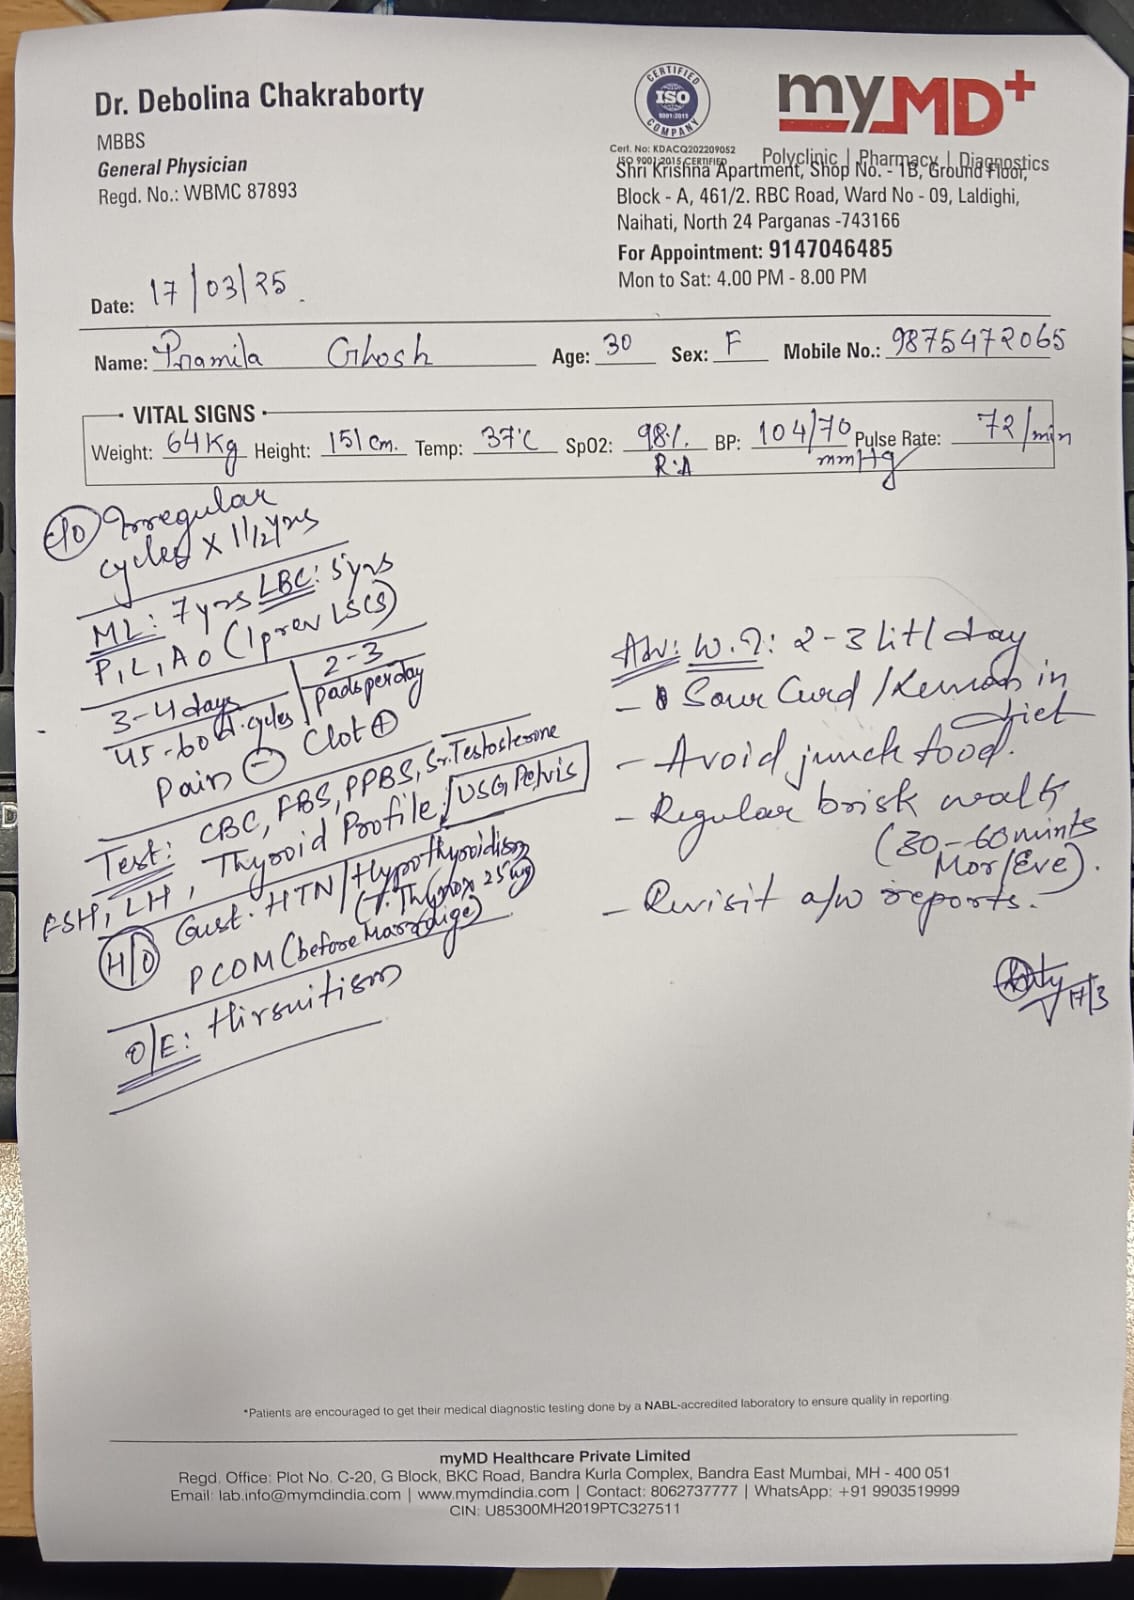 Dr. Debolina Chakraborty
MBBS
General Physician
Regd. No.: WBMC 87893
CERTIFIED
ISO
9001:2015
COMPANY
Cert. No: KDACQ202209052
ISO 9001:2015 CERTIFIED
myMD+
Polyclinic | Pharmacy | Diagnostics
Shri Krishna Apartment, Shop No. - 1B, Ground Floor,
Block - A, 461/2. RBC Road, Ward No - 09, Laldighi,
Naihati, North 24 Parganas -743166
For Appointment: 9147046485
Mon to Sat: 4.00 PM - 8.00 PM
Date: 17/03/25.
Name: Pramila Ghosh Age: 30 Sex: F Mobile No.: 9875472065
VITAL SIGNS
Weight: 64Kg Height: 151 cm. Temp: 37°C SpO2: 98%. R.A BP: 104/70 mmHg Pulse Rate: 72/min
C/O Irregular
cycles x 1 1/2 yrs
ML: 7yrs LBC: 5yrs
P1L1A0 (1 prev LSCS)
3-4 days 2-3
45-60 d. cycles pads per day
Pain (-) Clot (+)
Test: CBC, FBS, PPBS, Sr. Testosterone
FSH, LH, Thyroid Profile / USG Pelvis
H/O Gest. HTN / Hypothyroidism
(T. Thyrox 25 mg)
PCOM (before Marraige)
O/E: Hirsuitism
Adv: W.I: 2-3 lit/day
- Sour Curd / in diet
- Avoid junck food.
- Regular brisk walk
(30-60 mints
Mor/Eve).
- Revisit a/w reports.
17/3
*Patients are encouraged to get their medical diagnostic testing done by a NABL-accredited laboratory to ensure quality in reporting
myMD Healthcare Private Limited
Regd. Office: Plot No. C-20, G Block, BKC Road, Bandra Kurla Complex, Bandra East Mumbai, MH - 400 051
Email: lab.info@mymdindia.com | www.mymdindia.com | Contact: 8062737777 | WhatsApp: +91 9903519999
CIN: U85300MH2019PTC327511